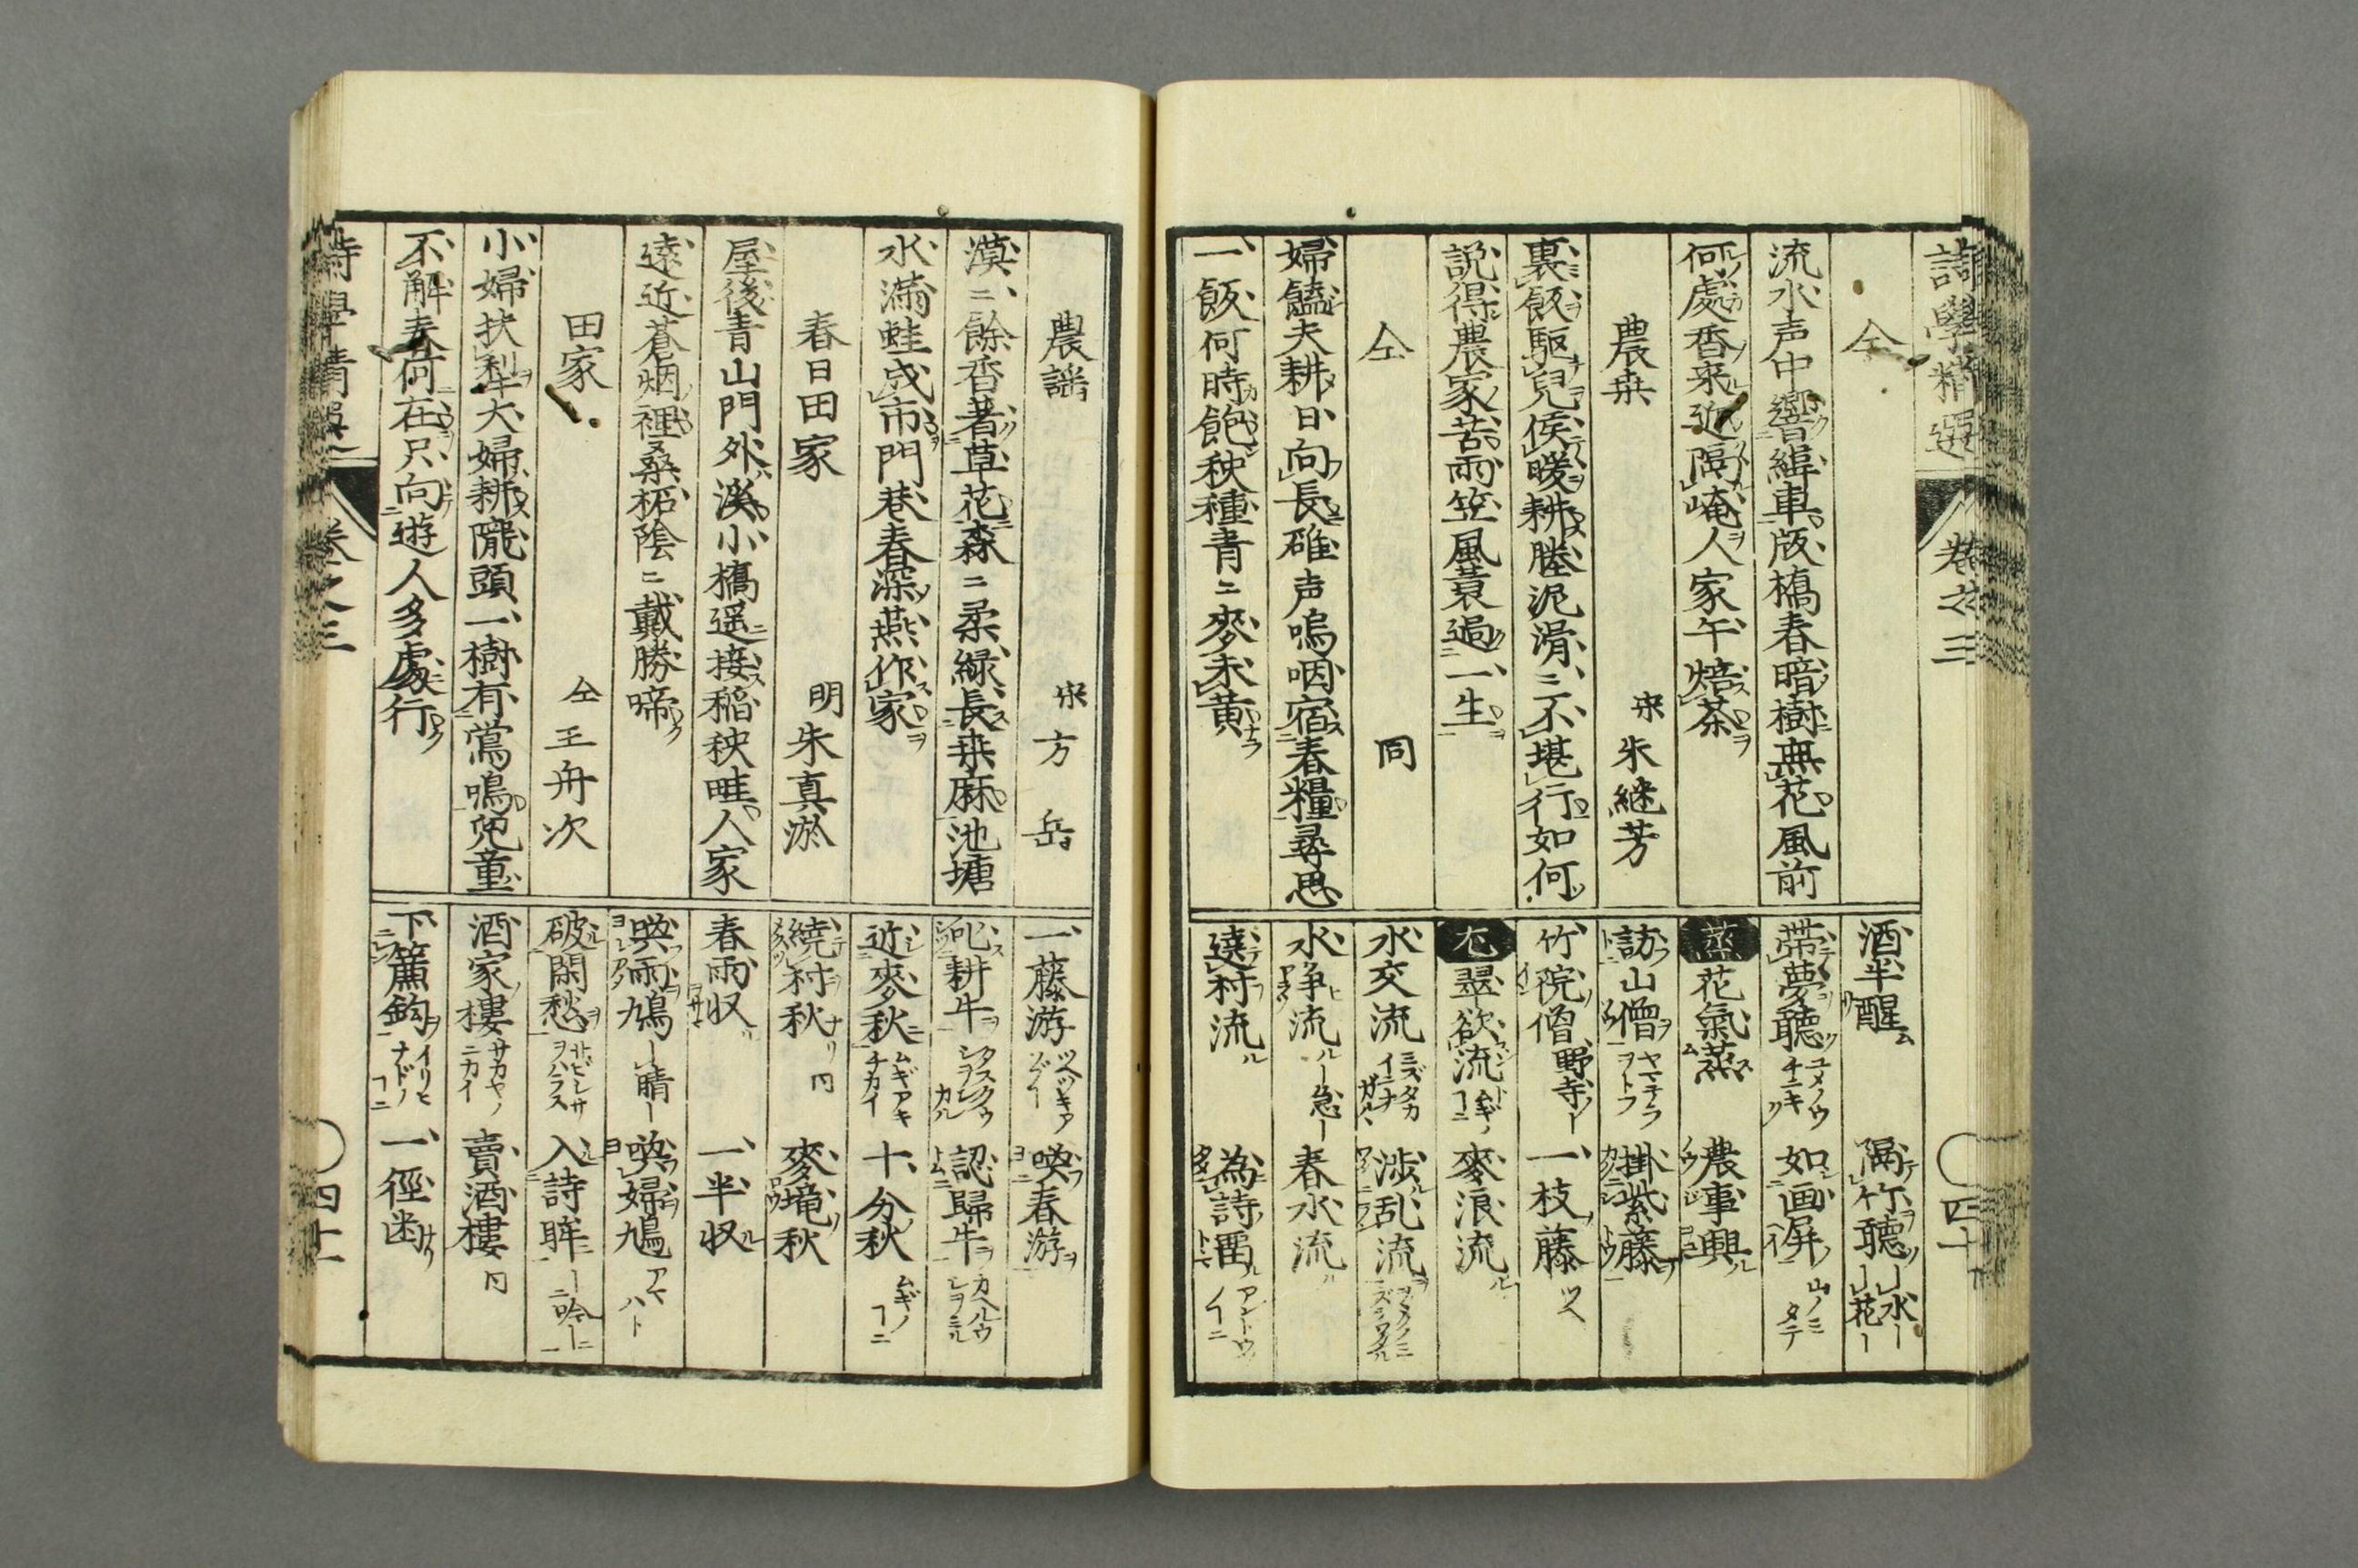 詩學精選 卷之三 四十
仝
流水声中響緯車版橋春暗樹無花風前
何處香来近隔崦人家午焙茶
農桒 宋 朱継芳
裏飯駆児候暖耕塍泥滑〻不堪行如何
説得農家苦雨笠風蓑過一生
仝 同
婦饁夫耕日向長碓声嗚咽宿舂糧尋思
一飯何時飽秧種青〻麥未黄
酒半醒 隔竹聴
帯夢聴 如画屏
蒸 花氣蒸 農事興
訪山僧 掛紫藤
竹院僧 野寺ー 一枝藤
尤 翠欲流 麥浪流
水交流 渉乱流
水浄流 ー急ー 春水流
遶村流 為詩畱
農謡 宋 方岳
漠〻餘香着草花森〻柔緑長桒麻池塘
水満蛙成市門巷春深燕作家
春日田家 明 朱真淤
屋後青山門外溪小橋遥接稲秧畦人家
遠近蒼烟裡桑柘陰〻戴勝啼
田家 仝 王舟次
小婦扶犁大婦耕隴頭一樹有鶯鳴児童
不解春何在只向遊人多處行
一藤游 喚春游
叱耕牛 認歸牛
近麥秋 十分秋
繞村秋 麥壠秋
春雨収 一半収
喚雨鳩 ー晴ー 喚婦鳩
破閑愁 入詩眸 ー吟ー
酒家樓 賣酒樓
下簾鈎 一徑幽
詩學精選 卷之三 四十一